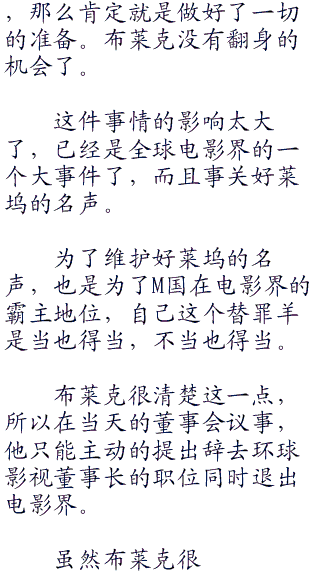 ，那么肯定就是做好了一切
的准备。布莱克没有翻身的
机会了。
这件事情的影响太大
了，已经是全球电影界的一
个大事件了，而且事关好菜
坞的名声。
为了维护好菜坞的名
声，也是为了M国在电影界的
霸主地位，自己这个替罪羊
是当也得当，不当也得当。
布莱克很清楚这一点，
所以在当天的董事会议事，
他只能主动的提出辞去环球
影视董事长的职位同时退出
电影界。
虽然布莱克很